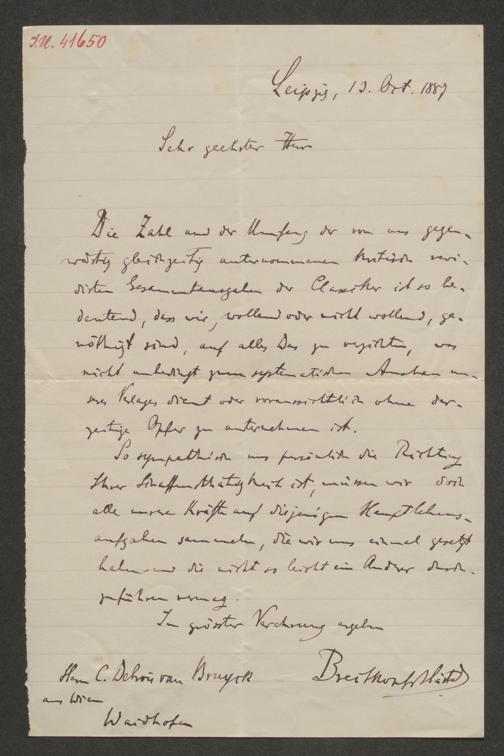 I.N. 41650
Leipzig, 13. Oct. 1887
Sehr geehrter Herr
Die Zahl und der Umfang der von uns gegen-
wärtig gleichzeitig unternommenen kritisch revi-
dirten Gesammtausgaben der Classiker ist so be-
deutend, dass wir, wollend oder nicht wollend, ge-
nöthigt sind, auf alles Das zu verzichten, was
nicht unbedingt zum systematischen Ausbau un-
seres Verlages dient oder voraussichtlich ohne der-
zeitige Opfer zu unternehmen ist.
So sympathisch uns persönlich die Richtung
Ihrer Schaffensthätigkeit ist, müssen wir doch
alle unsre Kräfte auf diejenigen Hauptlebens-
aufgaben sammeln, die wir uns einmal gesetzt
haben und die nicht so leicht ein Andrer durch-
zuführen vermag.
In grösster Verehrung ergeben
Breitkopf & Härtel
Herrn C. Debrois van Bruyck
aus Wien
Waidhofen